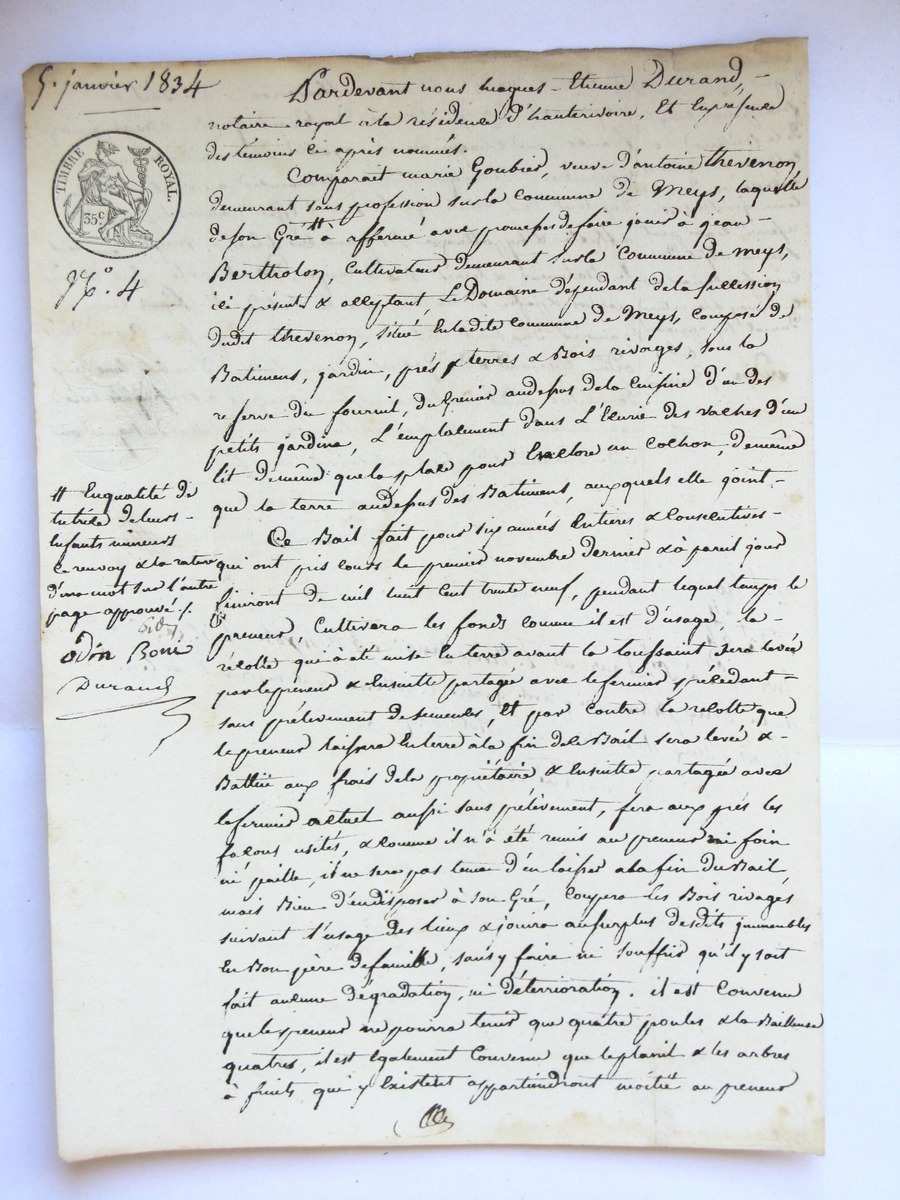 5. janvier 1834
TIMBRE ROYAL.
35 c
N.° 4
Pardevant nous Jacques-Etienne Durand,-
notaire royal à la résidence d'hauterivoire, Et En présence
des témoins ci après nommés.
Comparait marie Goubier, veuve d'antoine thevenon
demeurant sans profession sur la commune de Meys, laquelle
de son Gré # à affermé avec promesse de faire jouir à jean-
Bertholon, Cultivateur demeurant sur la Commune de meys,
ici présent & acceptant, Le Domaine dépendant de la succession
dudit thevenon, situé En ladite Commune de Meys, composé de
Batimens, jardin, prés & terres & Bois rivages, sous la
reserve du fournil, du Grenier au dessus de la Cuisine d'un des
petits jardins, L'emplacement dans L'Ecurie des vaches d'un
lit de même que la place pour Enclore un Cochon, de même
que la terre au dessus des Batimens, auxquels elle joint-
Ce Bail fait pour six années Entières & Consécutives-
qui ont pris cours le premier novembre dernier & à pareil jour
finiront de mil huit Cent trente neuf, pendant lequel temps le
preneur, Cultivera les fonds comme il est d'usage, la-
récolte qui à été mise En terre avant la toussaint sera levée
par le preneur & Ensuitte partagée avec le fermier précédant-
sans prélèvement de semences, Et par contre la récolte que
le preneur laissera En terre à la fin de Bail sera levée &-
Battüe aux frais de la propriétaire & Ensuitte partagée avec
le fermier actuel aussi sans prélèvement, fera aux prés les
façons usités, & Comme il n'à été remis au preneur ni foin
ni paille, il ne sera pas tenu d'en laisser a la fin du Bail
mais Bien d'en disposer à son Gré, Coupera les Bois rivages
suivant l'usage des lieux & jouira au surplus desdits immeubles
En Bon père de famille, sans y faire ni souffrir qu'il y soit
fait aucune dégradation, ni déterrioration. il est Convenu
que le preneur ne pourra tenir que quatre poules & la Bailleuse
quatres, il est également Convenu que le plant & les arbres
à fruits qui y Existent appartiendront moitié au preneur
# En qualité de
tutrice de leurs-
Enfants mineurs
Le renvoy & la rature
d'un mot sur l'autre
page approuvé ./.
Odin Boni
Durand